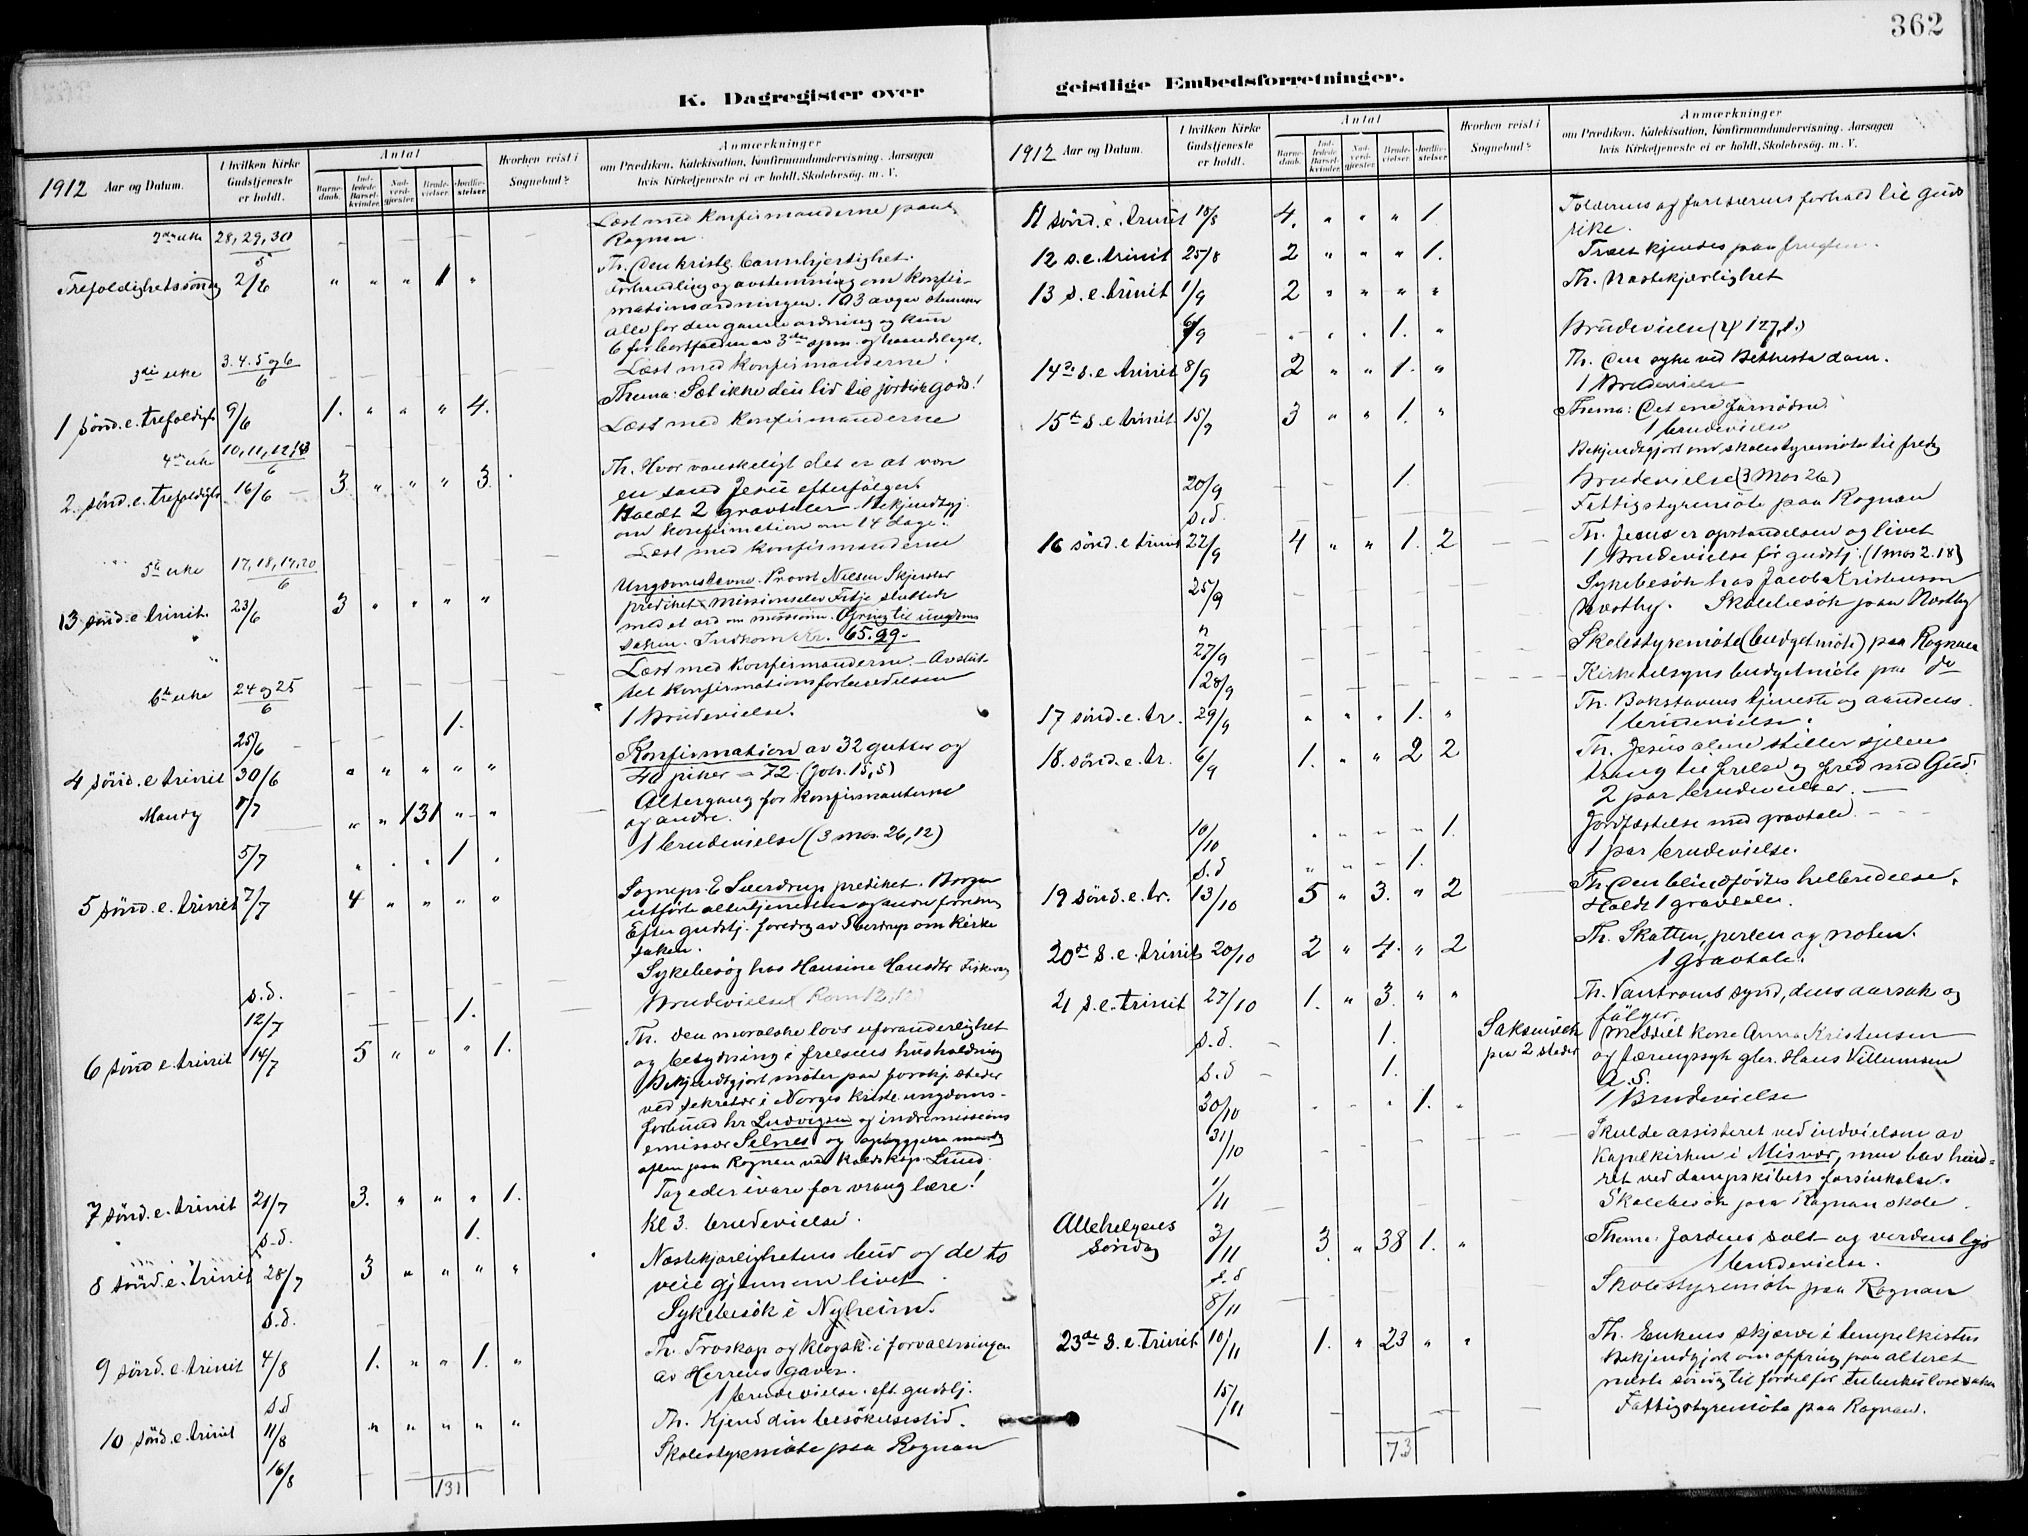 362
K. Dagregister over
geistlige Embedsforretninger.
1912 Aar og Datum.
I hvilken Kirke Gudstjeneste er holdt.
Antal
Barnedaab.
Indledede Barselkvinder.
Nadverdgjæster.
Brudevielser.
Jordfæstelser.
Hvorhen reist i Sognebud?
Anmærkninger
om Prædiken, Katekisation, Konfirmandundervisning, Aarsagen
hvis Kirketjeneste ei er holdt, Skolebesøg, m. V.
28, 29, 30/5 Læst med konfirmanderne paa
Rognan.
Trefoldighetssöndag 2/6 " " " 1 " Th. Den kristg. barmhjertighet.
Forhandling og avstemning om konfir-
mationsordningen. 103 avgav stemmer
alle for den gamle ordning og kun
6 for bortfallen av 3die spm. og haandslaget.
3die uke 3. 4. 5 og 6/6 Læst med konfirmanderne.
1 sönd. e. trefoldigh 9/6 1. " " " 4. Thema: Sæt ikke din lid til jordisk gods!
4de uke 10, 11, 12, 13/6 Læst med konfirmanderne
2. sönd. e. trefoldigh 16/6 3 " " " 3. Th. Hvor vanskeligt det er at være
en sand Jesu efterfölger.
Holdt 2 gravtaler. Bekjendtgj.
om konfirmation om 14 dage.
5te uke 17, 18, 19, 20/6 Læst med konfirmanderne
13 sönd. e. trinit. 23/6 3 " " " " Ungdomsstevne. Provst Nielsen Skjerstad
prediket. Missionselev Fitje sluttede
med et ord om missionen. Ofring til ungdoms
saken. Indkom Kr. 65.99.
6te uke 24 og 25/6 Læst med konfirmanderne. – Avslut-
tet konfirmationsforberedelsen
25/6 1. 1 Brudevielse.
4 sönd. e. trinit 30/6 " " " " " Konfirmation av 32 gutter og
40 piker = 72. (Joh. 15, 5)
Mandg 1/7 " " 131 " " Altergang for konfirmanterne
og andre.
5/7 " " " 1 " 1 brudevielse (3 mos. 26, 12)
5 sönd. e. trinit 7/7 4 " " " " Sognepr. E Sverdrup prediket. Borgen
utförte altertjenesten og andre forretng
Efter gudstj. foredrag av Sverdrup om kirke
saken.
s.d. Sykebesög hos Hansine Hansdtr Fiskvaag
12/7 1. Brudevielse (Rom 12, 12)
6 sönd e. trinit 14/7 5 " " " 1. Th. Den moralske lovs uforanderlighet
og betydning i frelsens husholdning
Bekjendtgjort möter paa forskj. steder
ved sekretær i Norges kristl. ungdoms-
forbund hr Ludvigsen og indremissions
emissær Selnes og
aften paa Rognan ved Lund.
7 sönd. e. trinit 21/7 3. " " " 1. Tag eder ivare for vrang lære!
s.d. 1. Kl 3. brudevielse.
8 sönd. e. trinit 28/7 3 " " " " Næstekjærlighetens bud og de to
veie gjennem livet
s.d. Sykebesök i Nyheim.
9 sönd. e. trinit 4/8 1. " " 1. " Th. Troskap og klogsk. i forvaltningen
av Herrens gaver.
s.d 1 brudevielse. eft. gudstj.
10 sönd. e. trinit 11/8 " " " " " Th. Kjend din besökelsestid.
16/8 Skolestyremöte paa Rognan
131
1912 Aar og Datum.
I hvilken Kirke Gudstjeneste er holdt.
Antal
Barnedaab.
Indledede Barselkvinder.
Nadverdgjæster.
Brudevielser.
Jordfæstelser.
Hvorhen reist i Sognebud?
Anmærkninger
om Prædiken, Katekisation, Konfirmandundervisning, Aarsagen
hvis Kirketjeneste ei er holdt, Skolebesøg, m. V.
11 sönd. e. trinit 18/8 4. " " " 1. Tolderens og fariseerens forhold til Guds
rike.
12 s. e. trinit 25/8 2 " " " 1. Træet kjendes paa frugten.
13 s. e. trinit 1/9 2 " " " " Th. Næstekjærlighet
6/9 " " 1. " Brudevielse (ψ 127, 1.)
14de s. e trinit 8/9 2 " " 1. " Th. Den syke ved Bethesda dam.
1 Brudevielse
15de s. e. trinit 15/9 3 " " 1. " Thema: Det ene fornødne.
1 brudevielse
Bekjendtgjort om skolestyremöte til fredag
20/9 1. Brudevielse (3 Mos 26)
s.d. Fattigstyremöte paa Rognan
16 sönd. e trinit 22/9 4 " " 1. 2 Th. Jesus er opstandelsen og livet
1 Brudevielse för gudstj. (1 mos 2. 18)
25/9 Sykebesök hos Jacob Kristensen
Nestby. Skolebesök paa Nestby
27/9 Skolestyremöte (budgetmöte) paa Rognan
28/9 Kirketilsyns budgetmöte paa do
17 sönd. e. tr. 29/9 " " " 1. " Th. Bokstavens tjeneste og aandens.
1 brudevielse.
18. sönd. e. tr. 6/9 1. " " 2 2 Th. Jesus alene stiller sjelens
trang til frelse og fred med Gud.
2 par brudevielser.
10/10 " " " " 1. Jordfæstelse med gravtale.
s.d " " " 1. 1 par brudevielse.
19 sönd. e. tr. 13/10 5 " 3. " 2 Th. Den blindfödtes helbredelse.
Holdt 1 gravtale.
20de s. e. trinit 20/10 2 " 4. " 2 Th. Skatten, perlen og noten.
1 gravtale.
21 s. e. trinit 27/10 1. " 3. " " Th. Vantroens synd, dens aarsak og
fölger.
s.d. 1. Saksenvik paa 2 steder Meddelt kone Anna Kristensen
s.d 1. og tæringssyk gbr. Hans Villumsen
D. S.
30/10 " " " 1. " 1 Brudevielse
31/10 Skulde assisteret ved indvielsen av
Kapelkirken i Misvær, men blev hind-
ret ved dampskibets forsinkelse.
1/11 Skolebesök paa Rognan skole.
Allehelgens
söndag 3/11 3 " 38 1. " Thema: Jordens salt og verdens lys
1 brudevielse.
s.d
8/11 Skolestyremöte paa Rognan
23de s. e. Trinit 10/11 1. " 23 " " Th. Enkens skjærv i tempelkisten
Bekjendtgjort om offring paa alteret
næste söndag til fordel for tuberkulosesaken
15/11 Fattigstyremöte paa Rognan.
73